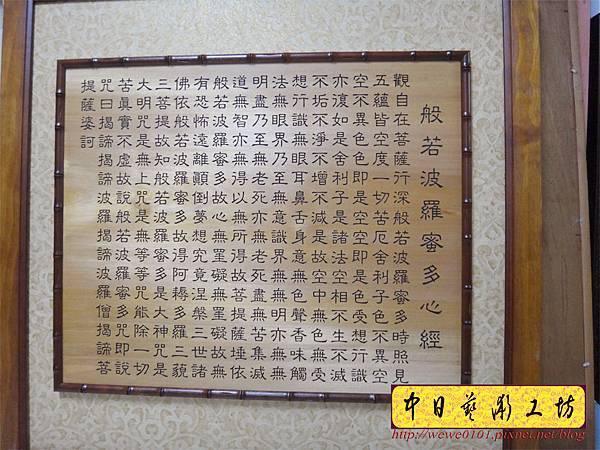 般若波羅蜜多心經
觀自在菩薩行深般若波羅蜜多時照見
五蘊皆空度一切苦厄舍利子色不異空
空不異色色即是空空即是色受想行識
亦復如是舍利子是諸法空相不生不滅
不垢不淨不增不減是故空中無色無受
想行識無眼耳鼻舌身意無色聲香味觸
法無眼界乃至無意識界無無明亦無無
明盡乃至無老死亦無老死盡無苦集滅
道無智亦無得以無所得故菩提薩埵依
般若波羅蜜多故心無罣礙無罣礙故無
有恐怖遠離顛倒夢想究竟涅槃三世諸
佛依般若波羅蜜多故得阿耨多羅三藐
三菩提故知般若波羅蜜多是大神咒是
大明咒是無上咒是無等等咒能除一切
苦真實不虛故說般若波羅蜜多咒即說
咒曰揭諦揭諦波羅揭諦波羅僧揭諦菩
提薩婆訶
中日藝術工坊
http://wewe0101.pixnet.net/blog